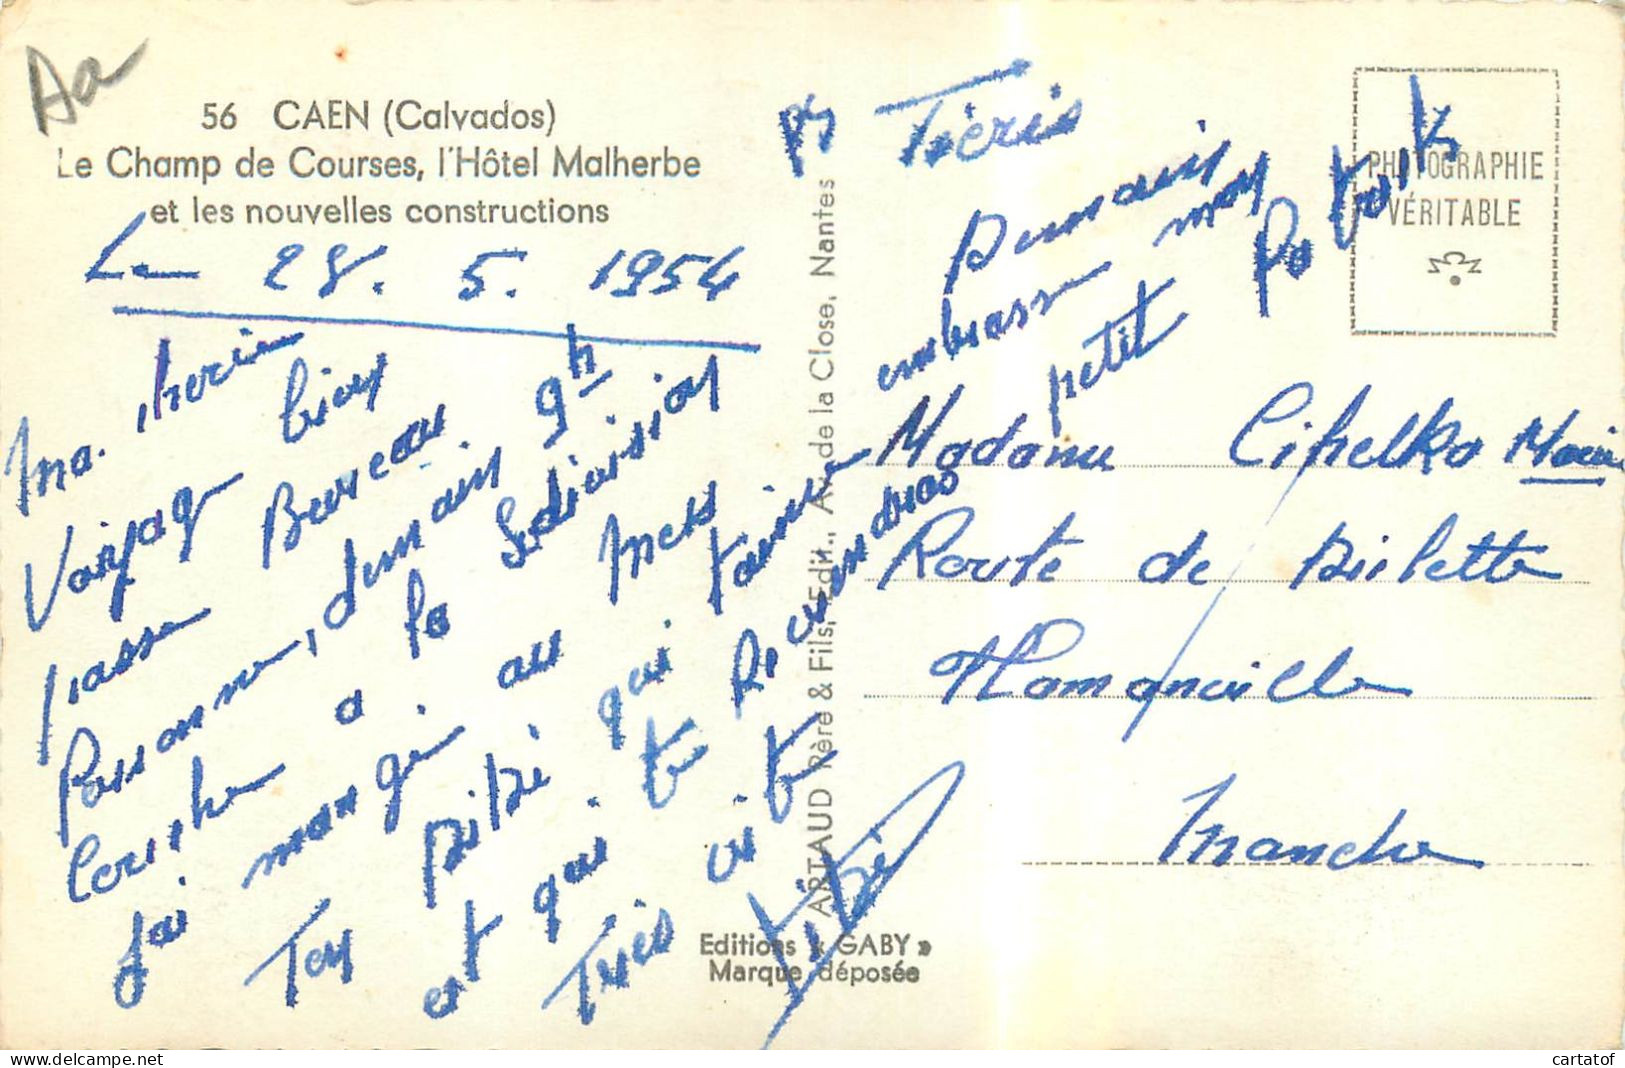 Aa
56 CAEN (Calvados)
Le Champ de Courses, l'Hôtel Malherbe
et les nouvelles constructions
Le 28. 5. 1954
Ma cherie
Voyage bien
passe Bureau
Personne, demain 9h
Couche a la Subdivision
j'ai mangé au mess
Ton Bibi qui t'aime
et qui te
Très vite
Bibi
PS
Demain
embrasse mon
petit
Madame Cipelko Marie
Route de Dielette
Flamanville
Manche
PHOTOGRAPHIE
VÉRITABLE
ARTAUD Père & Fils, Édit., Av. de la Close, Nantes
Editions « GABY »
Marque déposée
cartatof